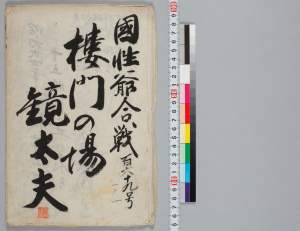 國性爺合戦 百六十九号
楼門の場
鏡太夫